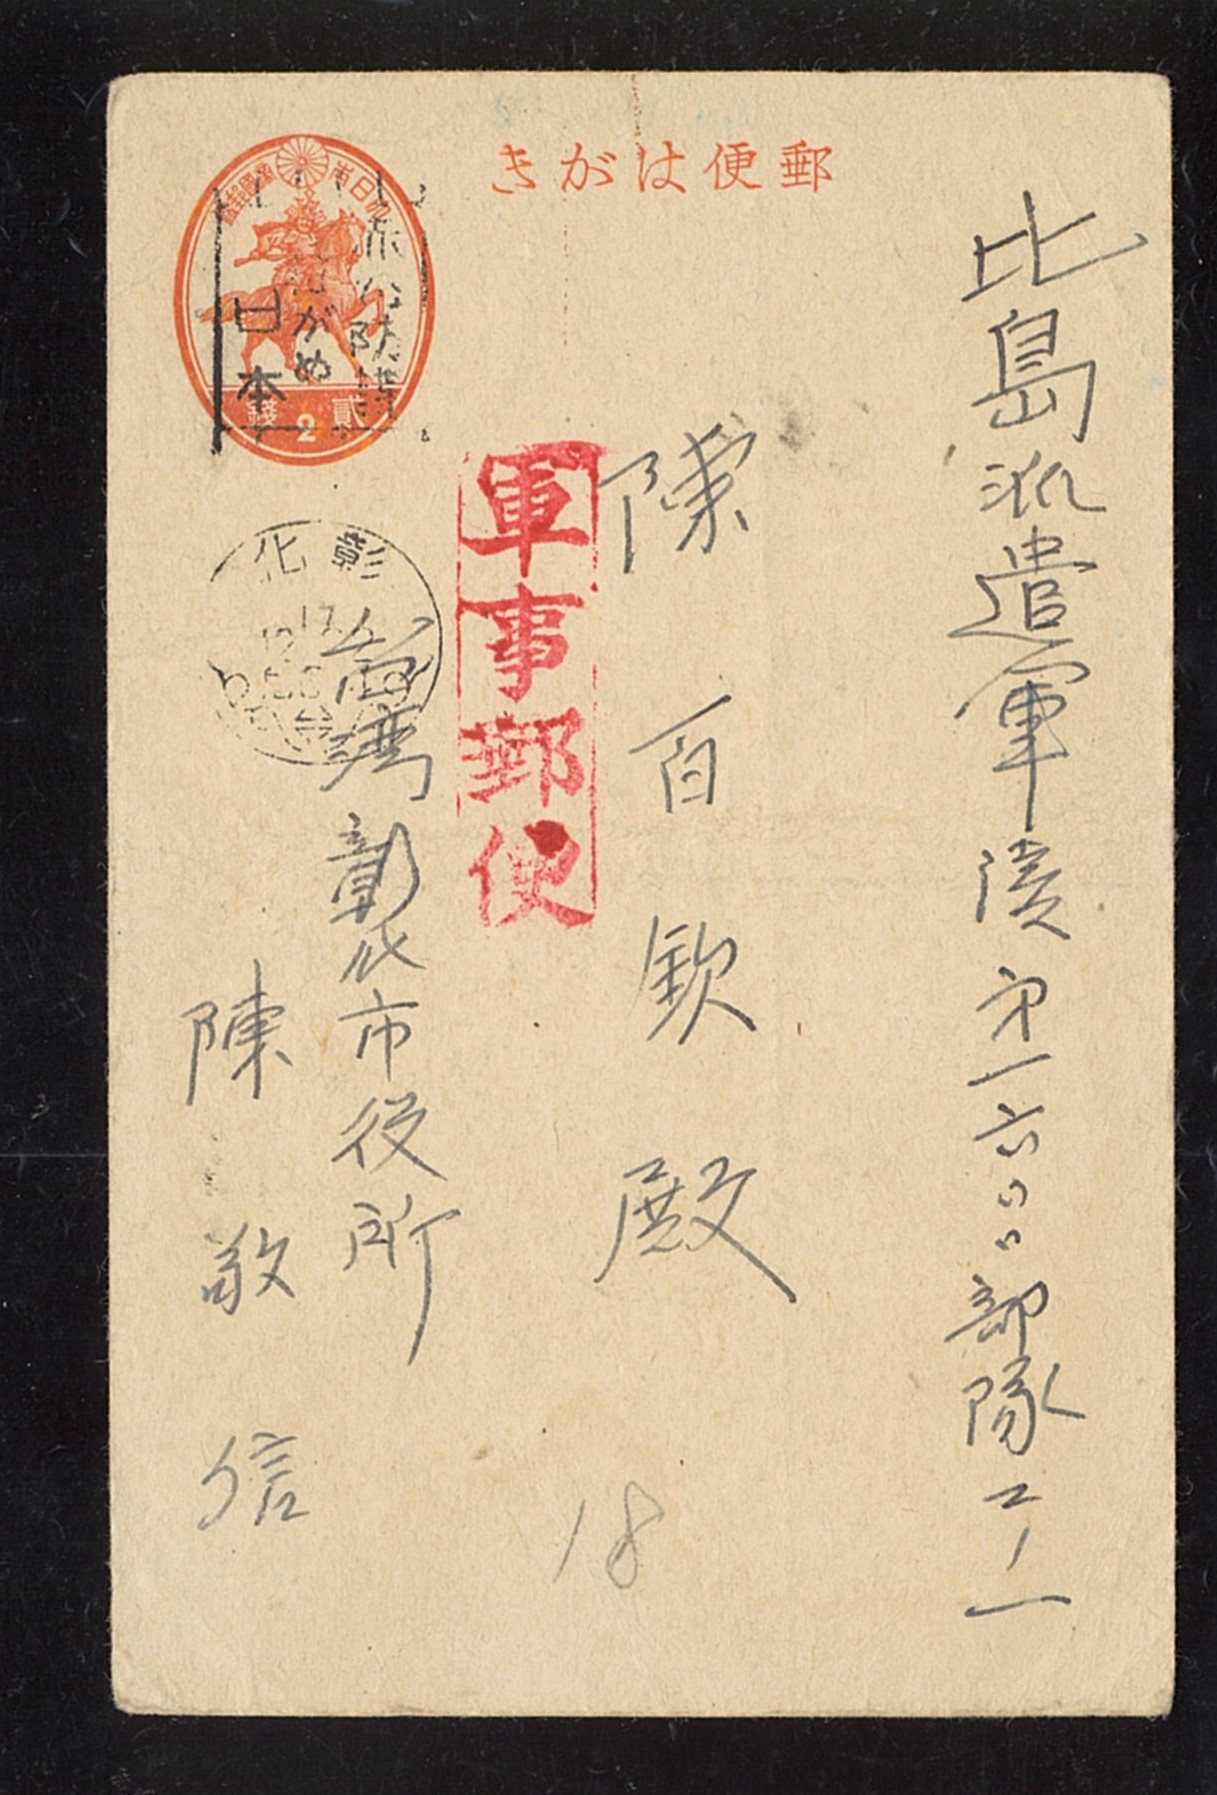 郵便はがき
大日本帝國郵便
貳錢
2
防諜
ながめ
日本
彰化
17
12
台
軍事郵便
比島派遣軍渡第一六〇〇部隊エノ一
陳百欽殿
台湾彰化市役所
陳敬信
18